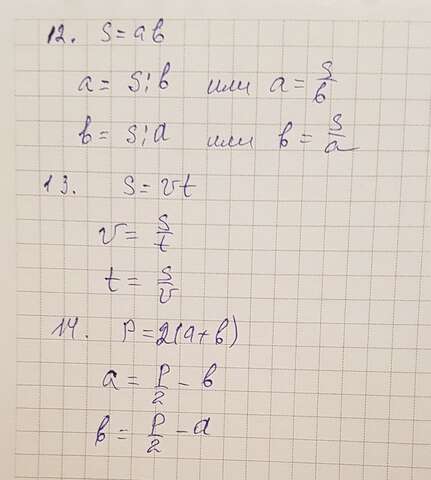 12. S = ab
a = S : b или a = S/b
b = S : a или b = S/a
13. S = vt
v = S/t
t = S/v
14. P = 2(a+b)
a = P/2 - b
b = P/2 - a